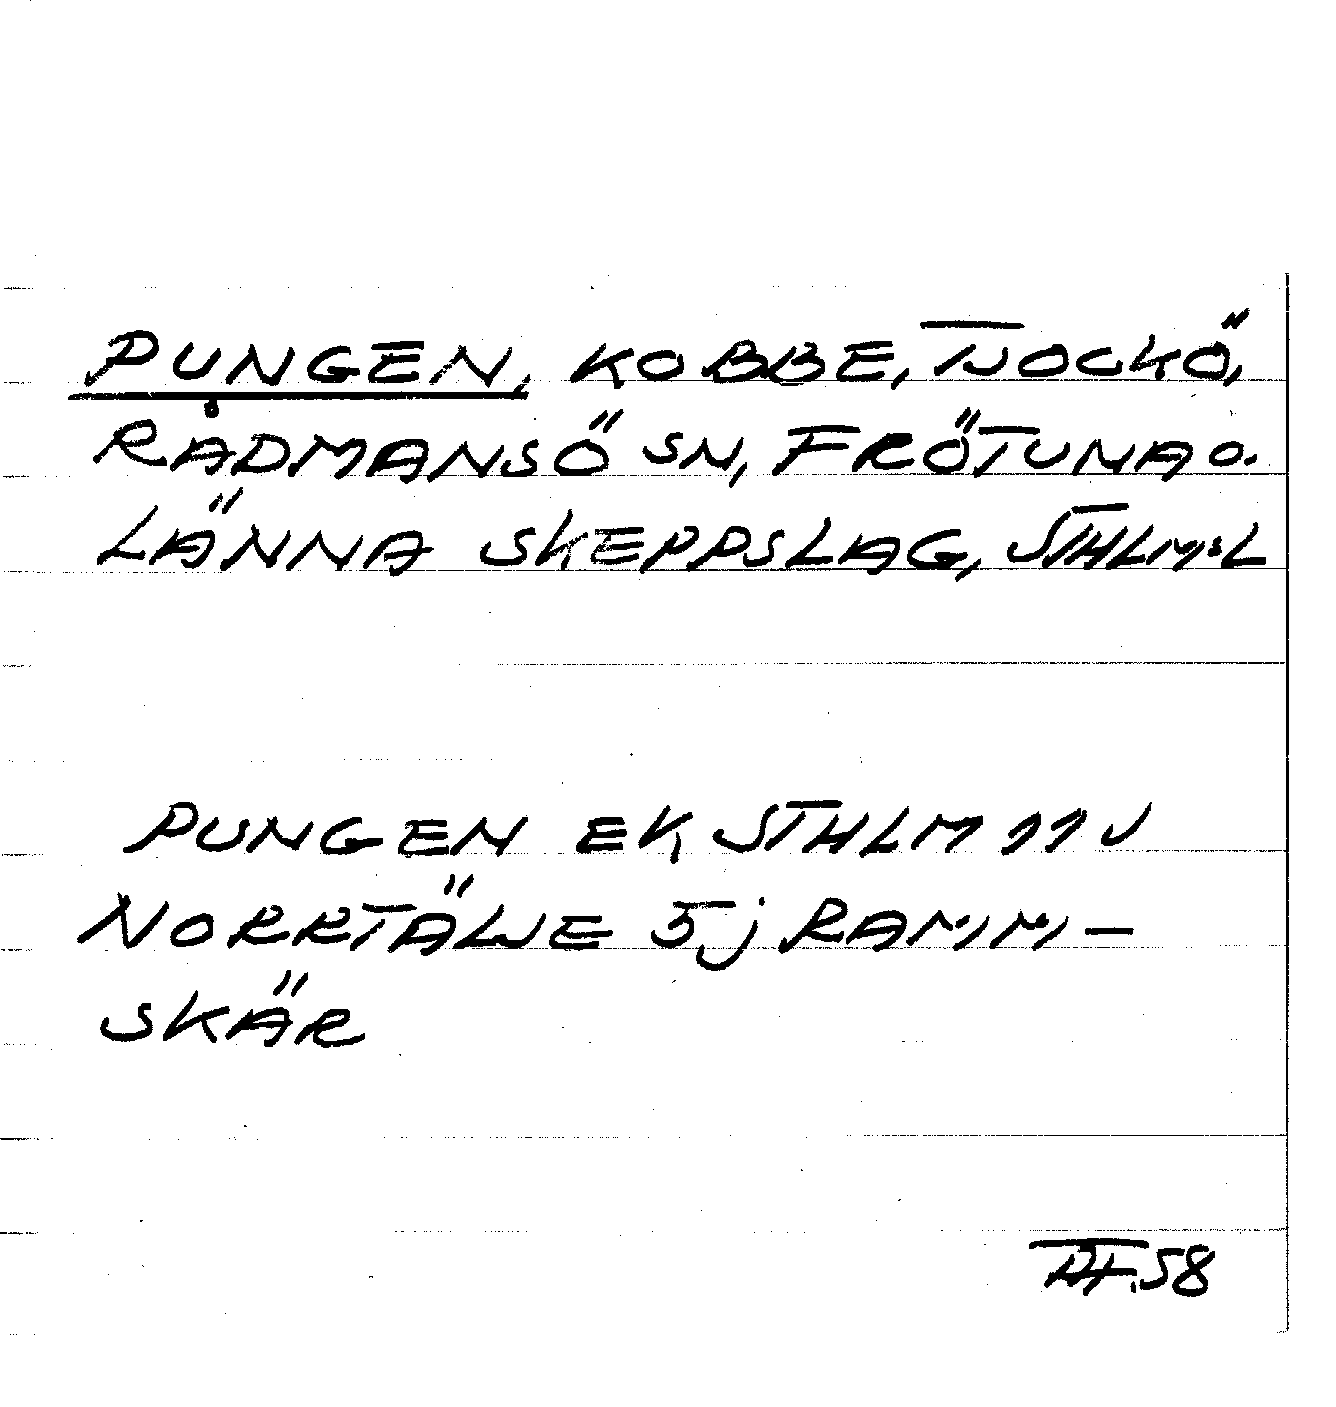 PUNGEN, KOBBE, TJOCKÖ,
RÅDMANSÖ SN, FRÖTUNA O.
LÄNNA SKEPPSLAG, STHLM:S L
PUNGEN EK STHLM 11 V
NORRTÄLJE 5 j RAMM-
SKÄR
58